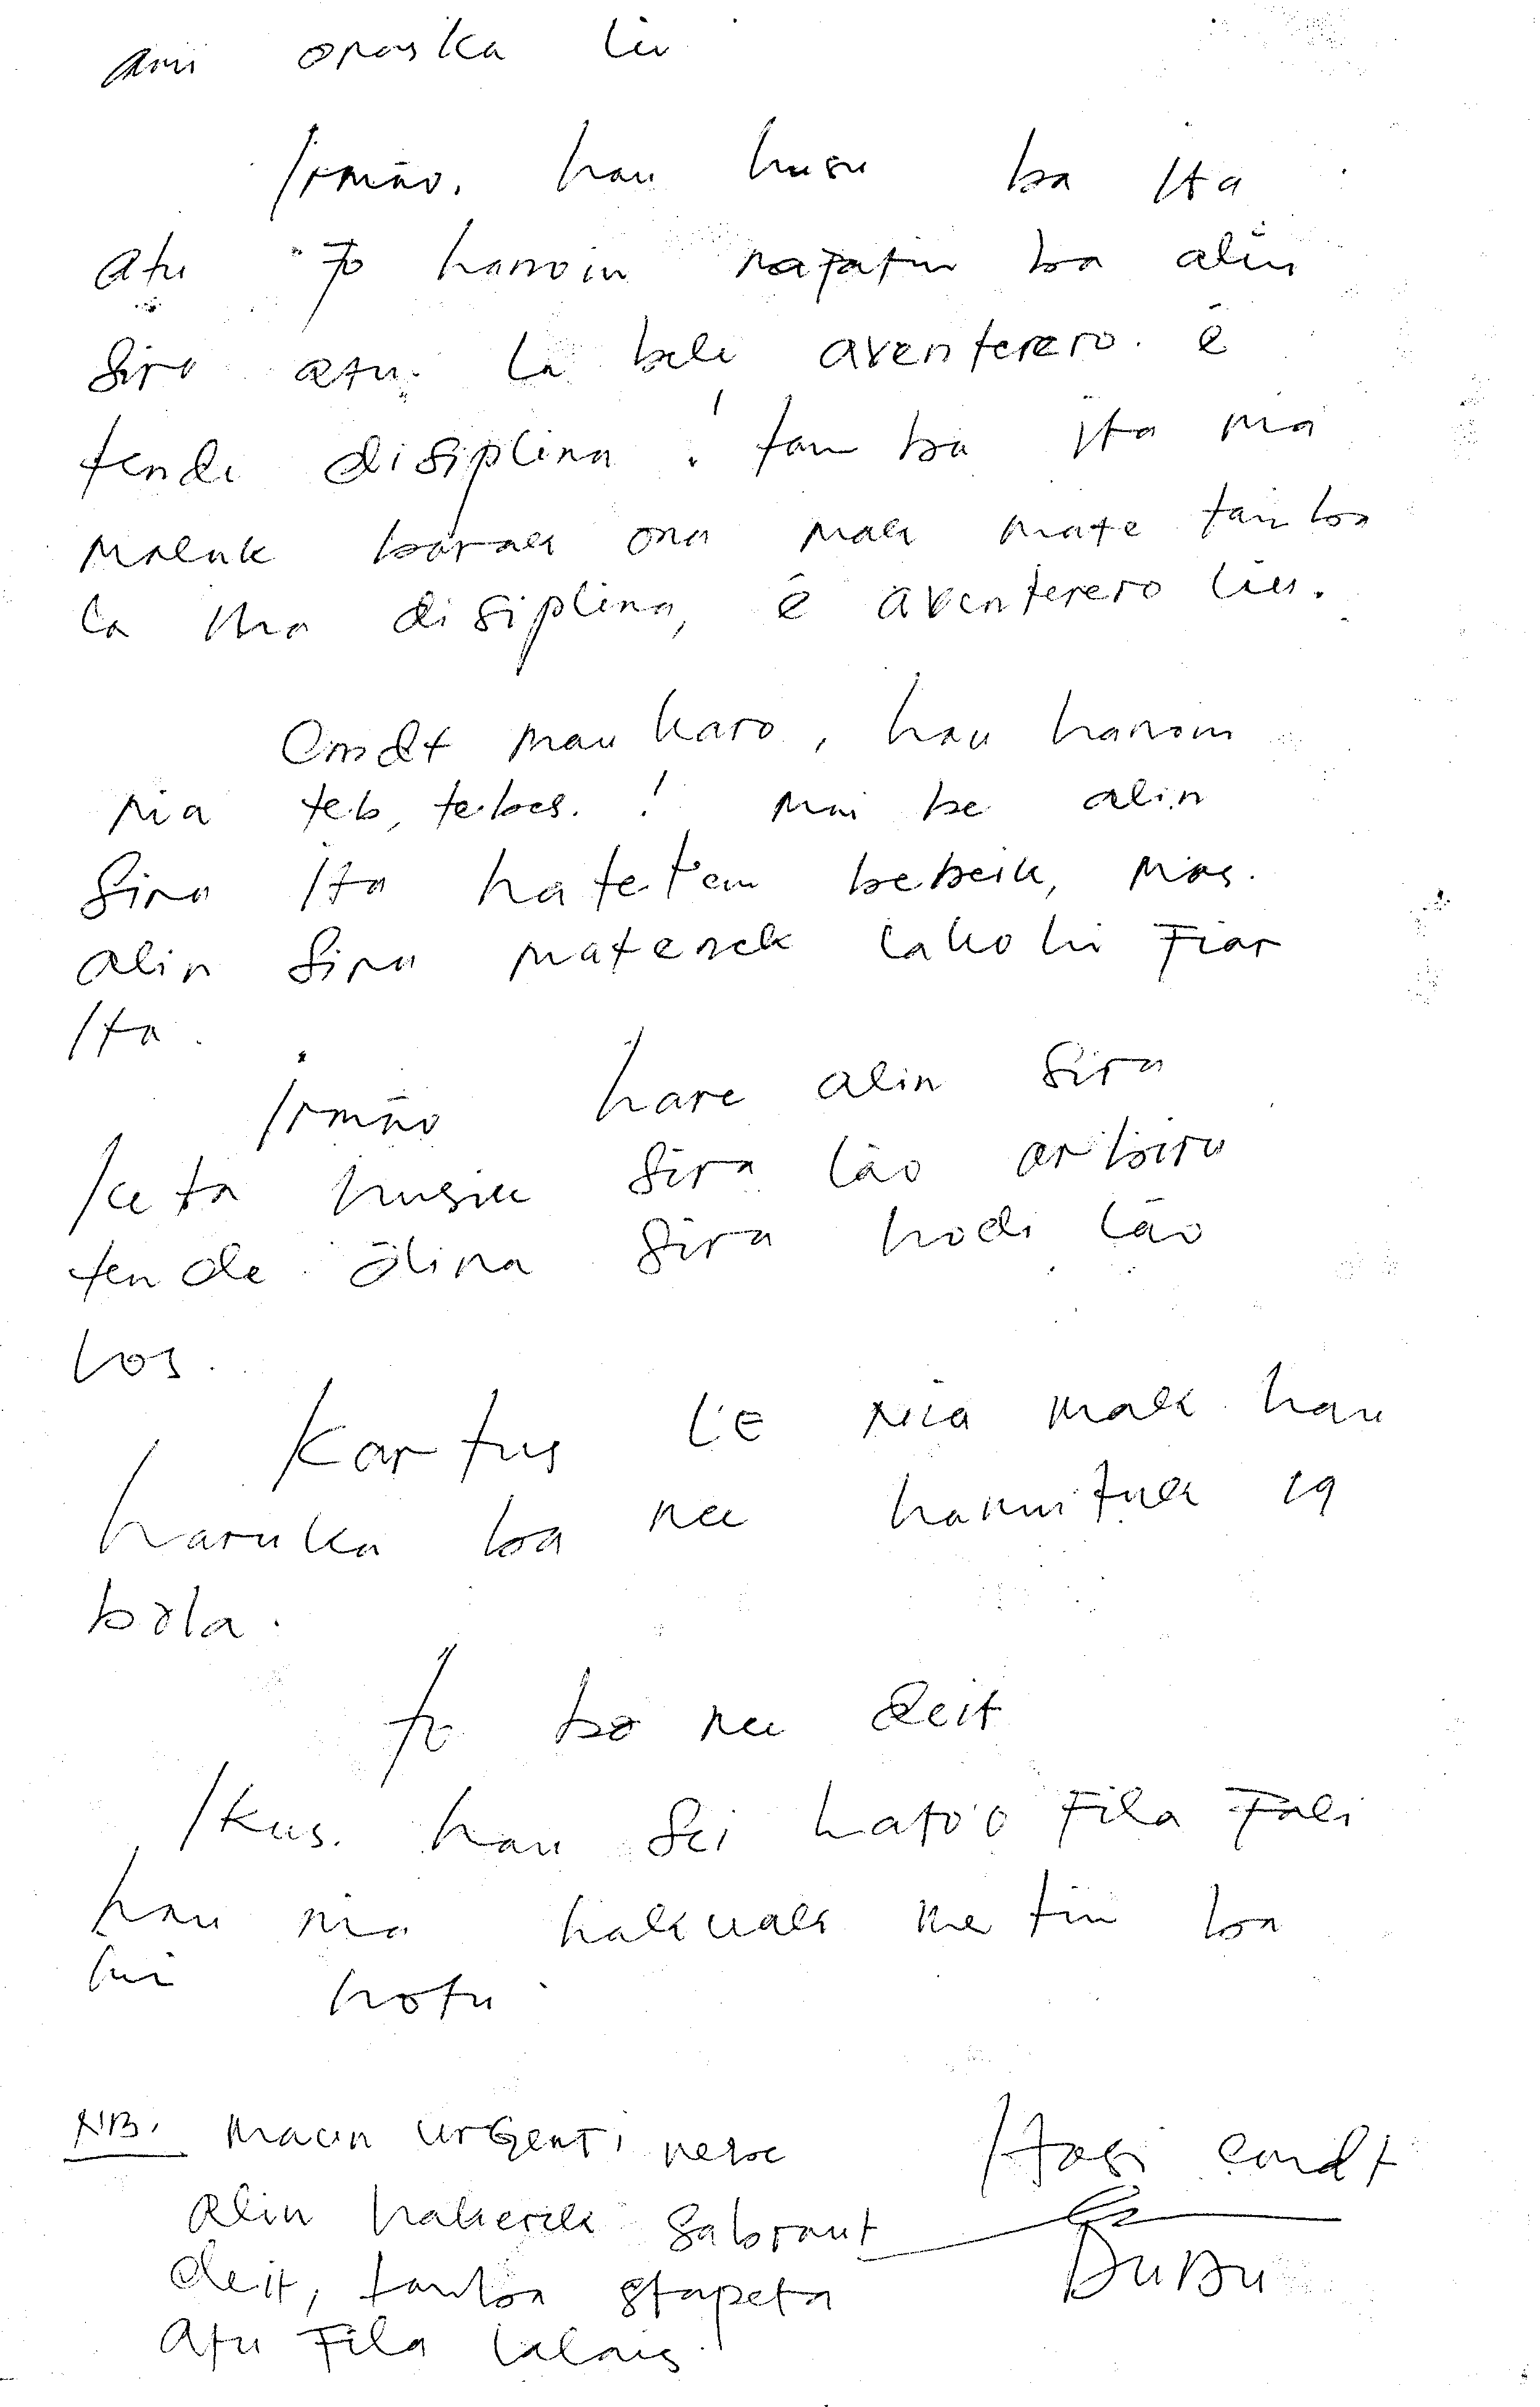 ami oras ka lia
Irmão, hau husu ba Ita
atu fo hanoin nafatin ba alin
Sira atu la bele aventerero. é
tende disiplina ! tam ba Ita nia
maluk barak ona mak mate tamba
la iha disiplina, é aventerero liu.
Cmdt mau karo, hau hanoin
nia teb, tebes. ! mai be alin
Sira Ita hatetem bebeik, mas.
alin Sira matenek lakohi Fiar
Ita.
Irmão hare alin Sira
keta husik Sira lão arbiru
tende dina Sira hodi lão
los.
Kartus LE nia mak hau
haruka ba nee hamutuk 19
bola.
to ba nee deit
Ikus. hau Sei hato'o Fila Fali
hau nia hakuak metin ba
imi hotu
NB. maun urGenti nebe
alin hakerek Sabraut
deit, tanba stapeta
atu Fila lalais.
cmdt
DuDu